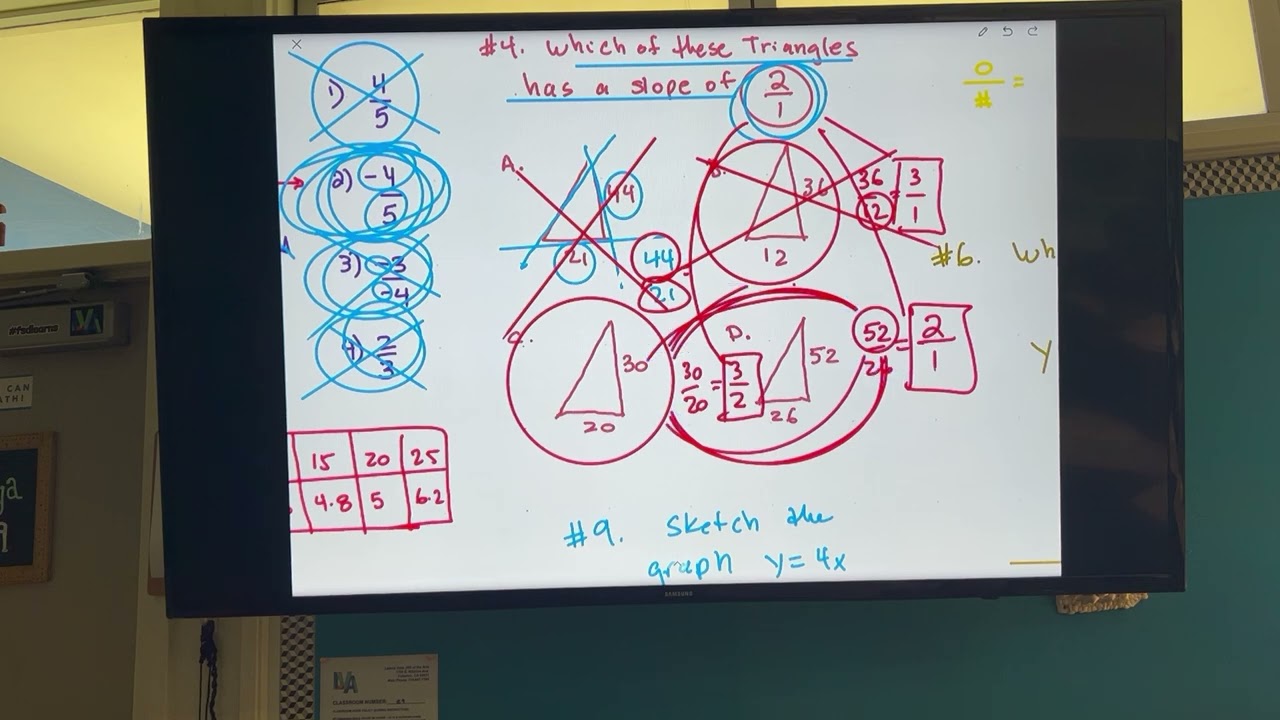 1) 4/5
2) -4/5
3) -3/-4
4) 2/3
15 20 25
4.8 5 6.2
#4. Which of these Triangles
has a slope of 2/1
A.
44
21
44/21
B.
36
12
36/12 = 3/1
C.
30
20
30/20 = 3/2
D.
52
26
52/26 = 2/1
#9. Sketch the
graph y = 4x
0/# =
#6. Wh
y
#fsdlearns
CAN
SAMSUNG
CLASSROOM NUMBER